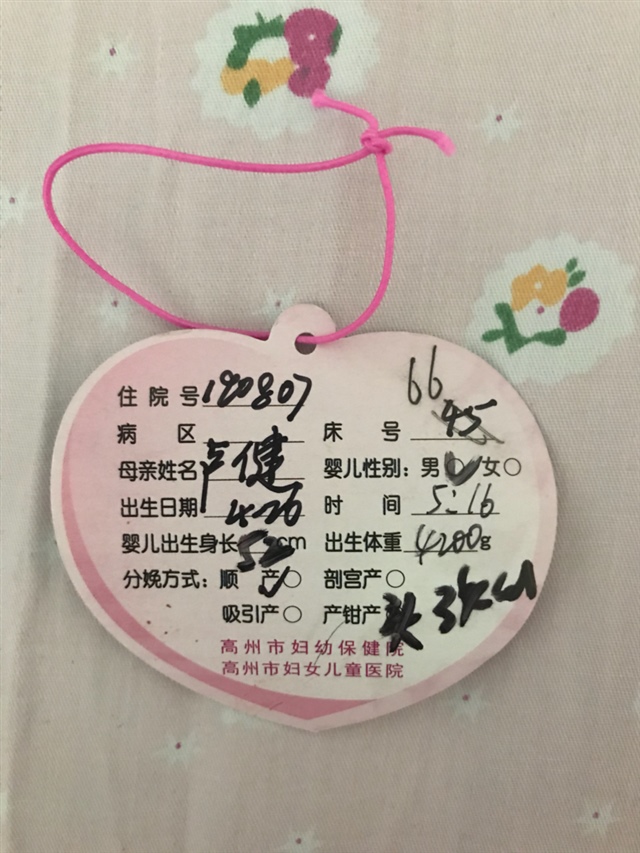 住院号 190807 66
病区 床号 45
母亲姓名 卢健 婴儿性别：男○ 女○
出生日期 4-26 时间 5:16
婴儿出生身长 52 cm 出生体重 4200g
分娩方式：顺产○ 剖宫产○
吸引产○ 产钳产 头
高州市妇幼保健院
高州市妇女儿童医院